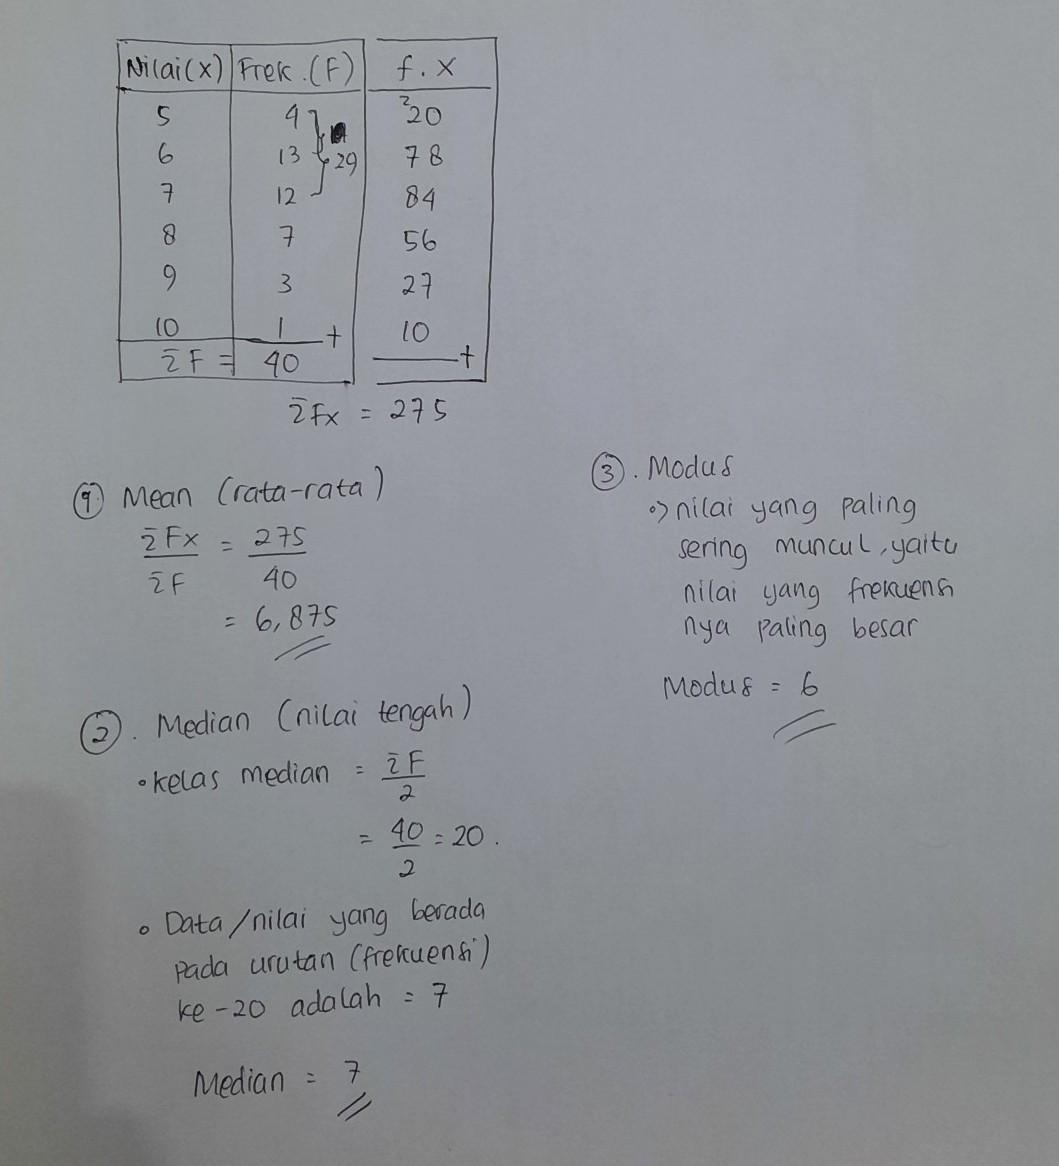 Nilai(x) Frek.(F) f. x
5 4 ²20
6 13 29 78
7 12 84
8 7 56
9 3 27
10 1 + 10
ΣF = 40 +
ΣFx = 275
① Mean (rata-rata)
ΣFx = 275
ΣF 40
= 6,875
②. Median (nilai tengah)
• kelas median = ΣF
2
= 40 = 20.
2
• Data/nilai yang berada
pada urutan (frekuensi)
ke-20 adalah = 7
Median = 7
③. Modus
=> nilai yang paling
sering muncul, yaitu
nilai yang frekuensi
nya paling besar
Modus = 6